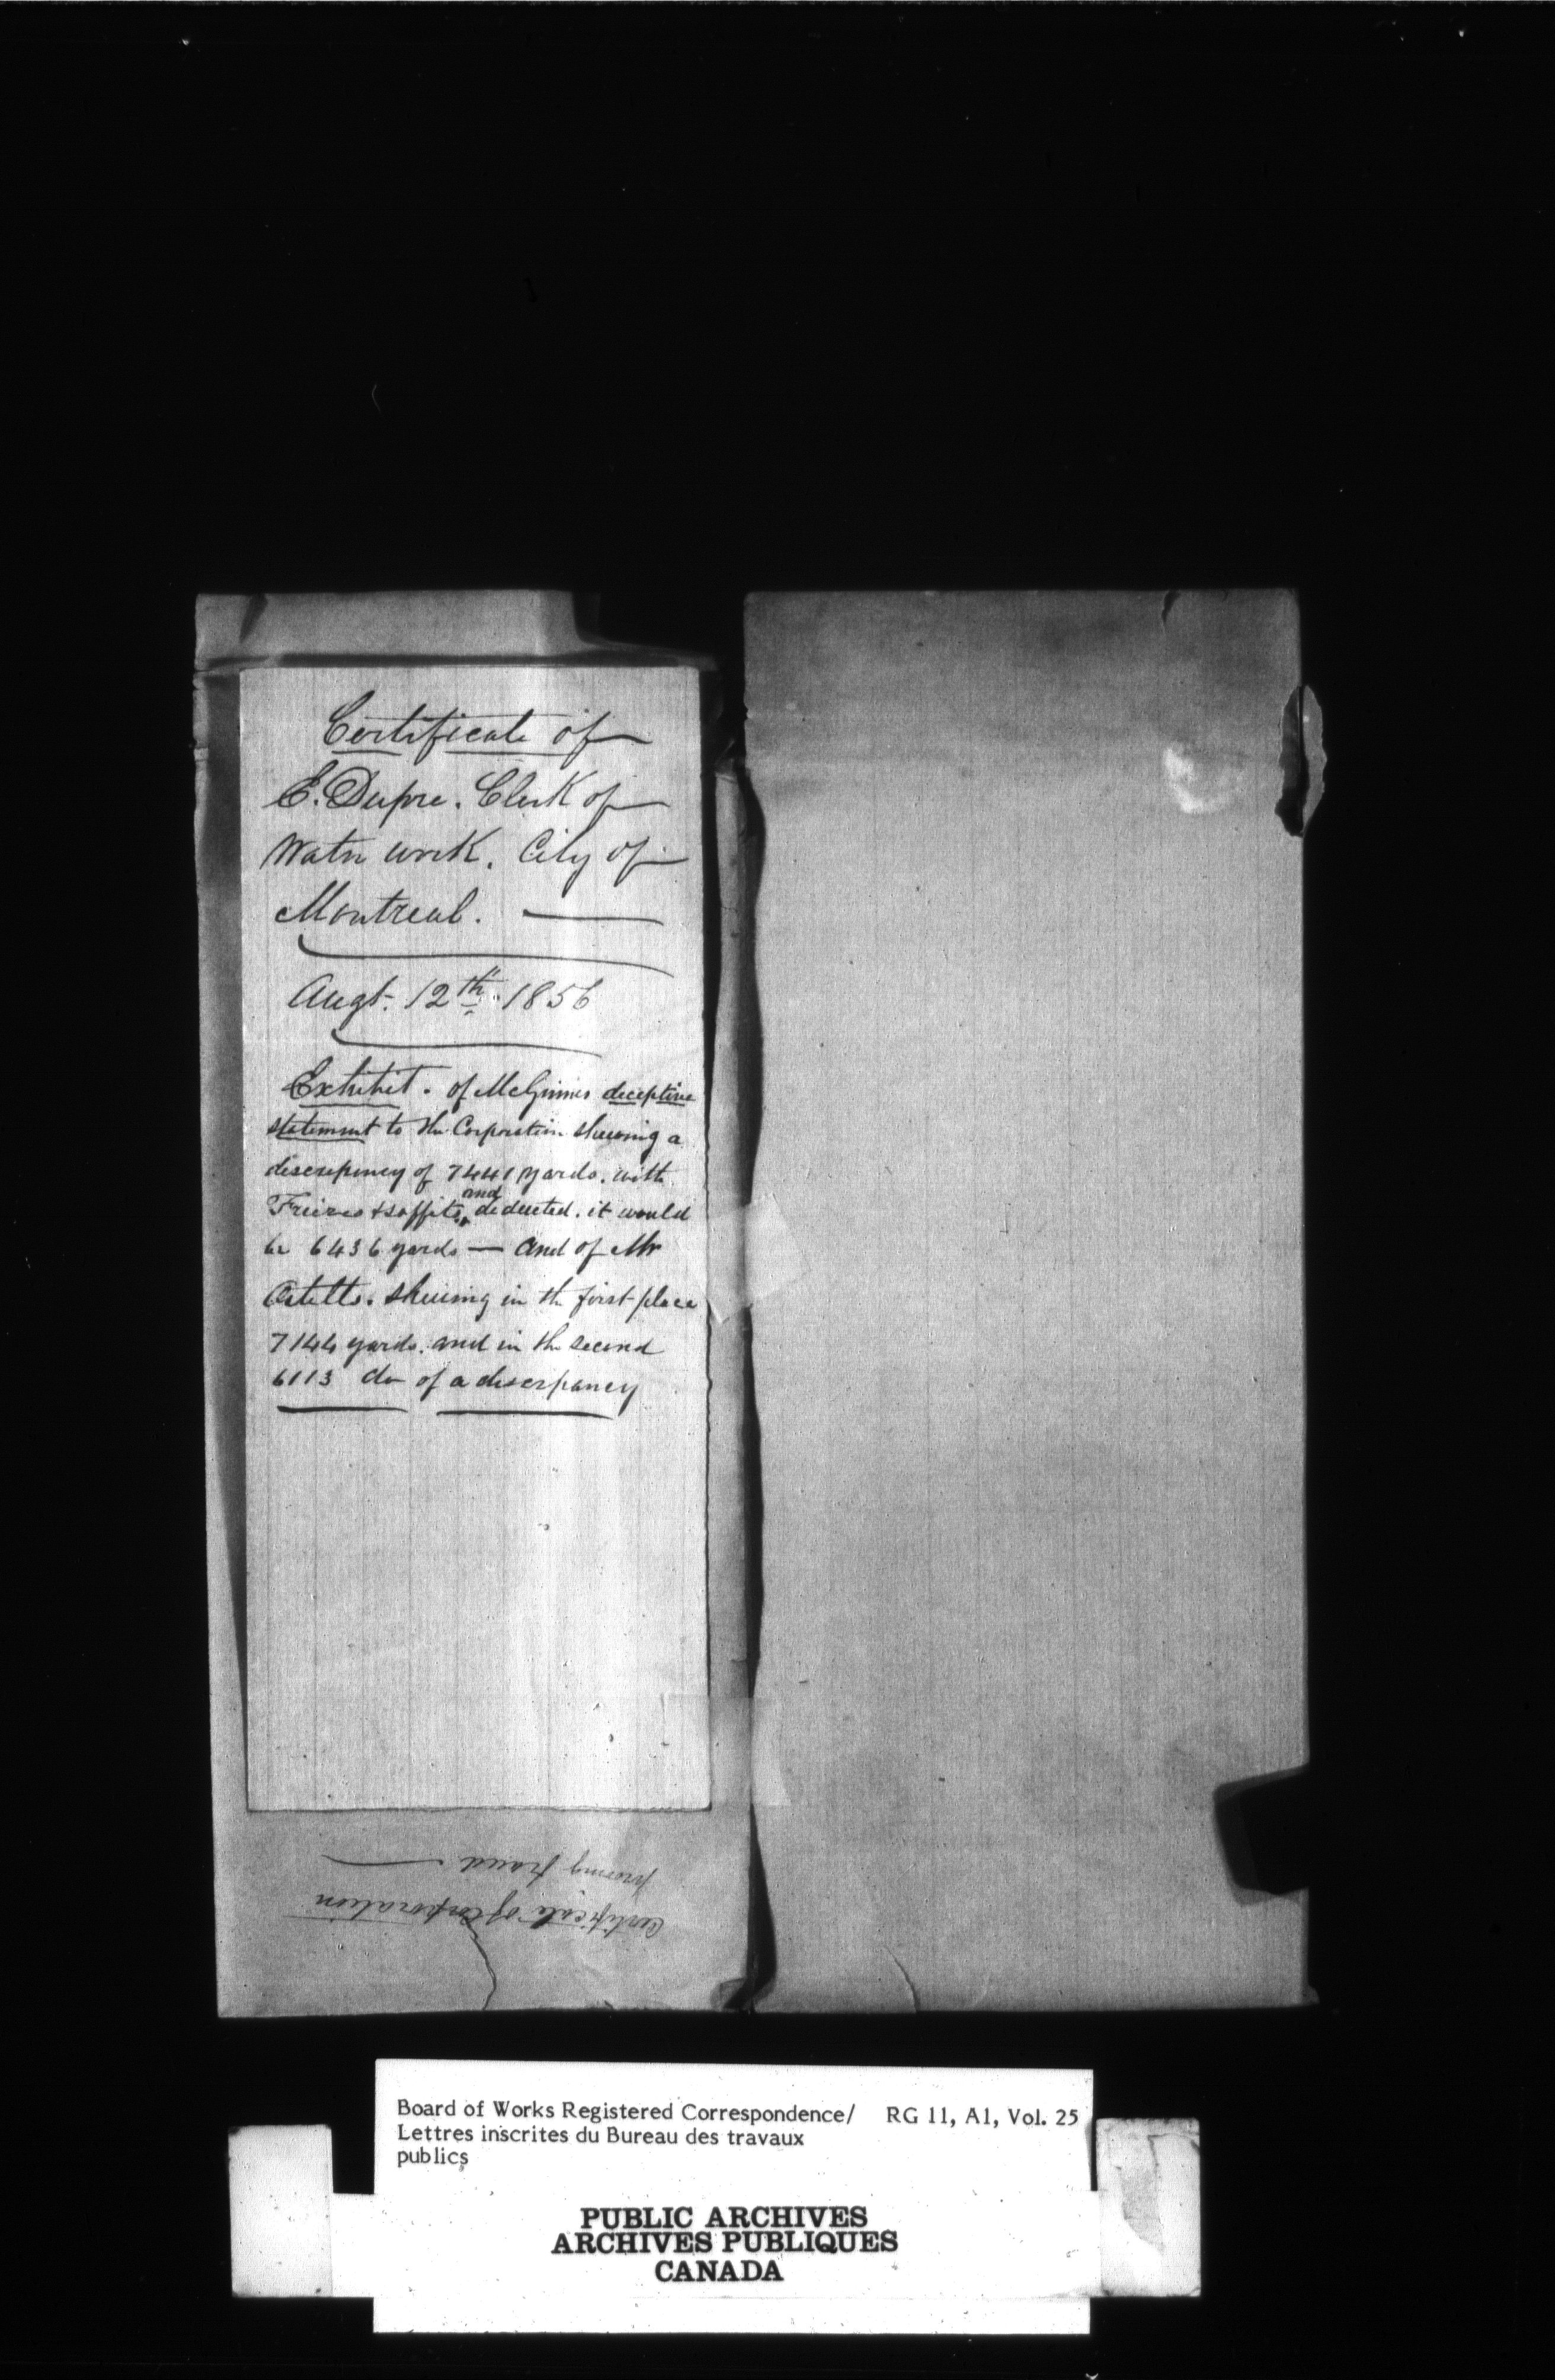 Certificate of
E. Dupre. Clerk of
Water work. City of
Montreal.
Augt. 12th. 1856
Exhibit. of McGinnis deceptive
statement to the Corporation shewing a
discrepency of 7441 yards. with
and
Friezes & soffits, deducted. it would
be 6436 yards — and of Mr
shewing in the first place
7144 yards. and in the second
6113 do of a discrpancy
Certificate of Corporation
proving fraud
Board of Works Registered Correspondence/ RG 11, A1, Vol. 25
Lettres inscrites du Bureau des travaux
publics
PUBLIC ARCHIVES
ARCHIVES PUBLIQUES
CANADA